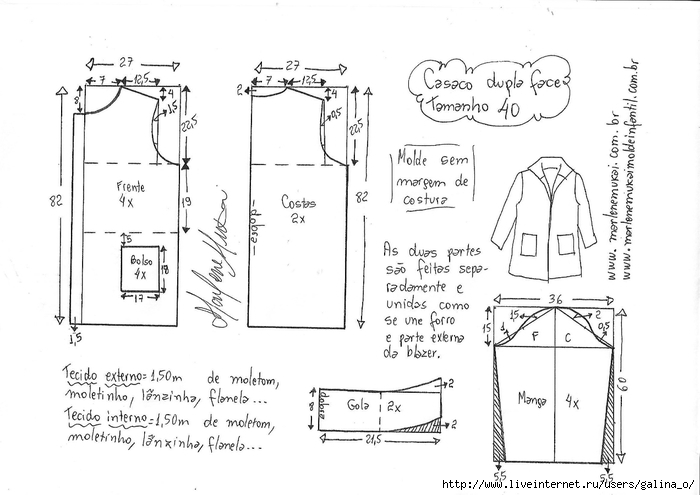 Casaco dupla face
tamanho 40
www.marlenemukai.com.br
www.marlenemukaimoldeinfantil.com.br
27
7
12,5
8
4
1,5
22,5
82
Frente
4x
19
5
Bolso
4x
18
17
1,5
27
2
7
12,5
4
0,5
22,5
82
Costas
2x
dobra
Molde sem
margem de
costura
As duas partes
são feitas sepa-
radamente e
unidas como
se une forro
e parte externa
da blazer.
36
15
15
1
2
0,5
F
C
60
Manga
4x
5,5
5,5
Tecido externo=1,50m de moletom,
moletinho, lãnzinha, flanela...
Tecido interno=1,50m de moletom,
moletinho, lãnzinha, flanela...
dobra
8
Gola
2x
2
2
21,5
http://www.liveinternet.ru/users/galina_o/